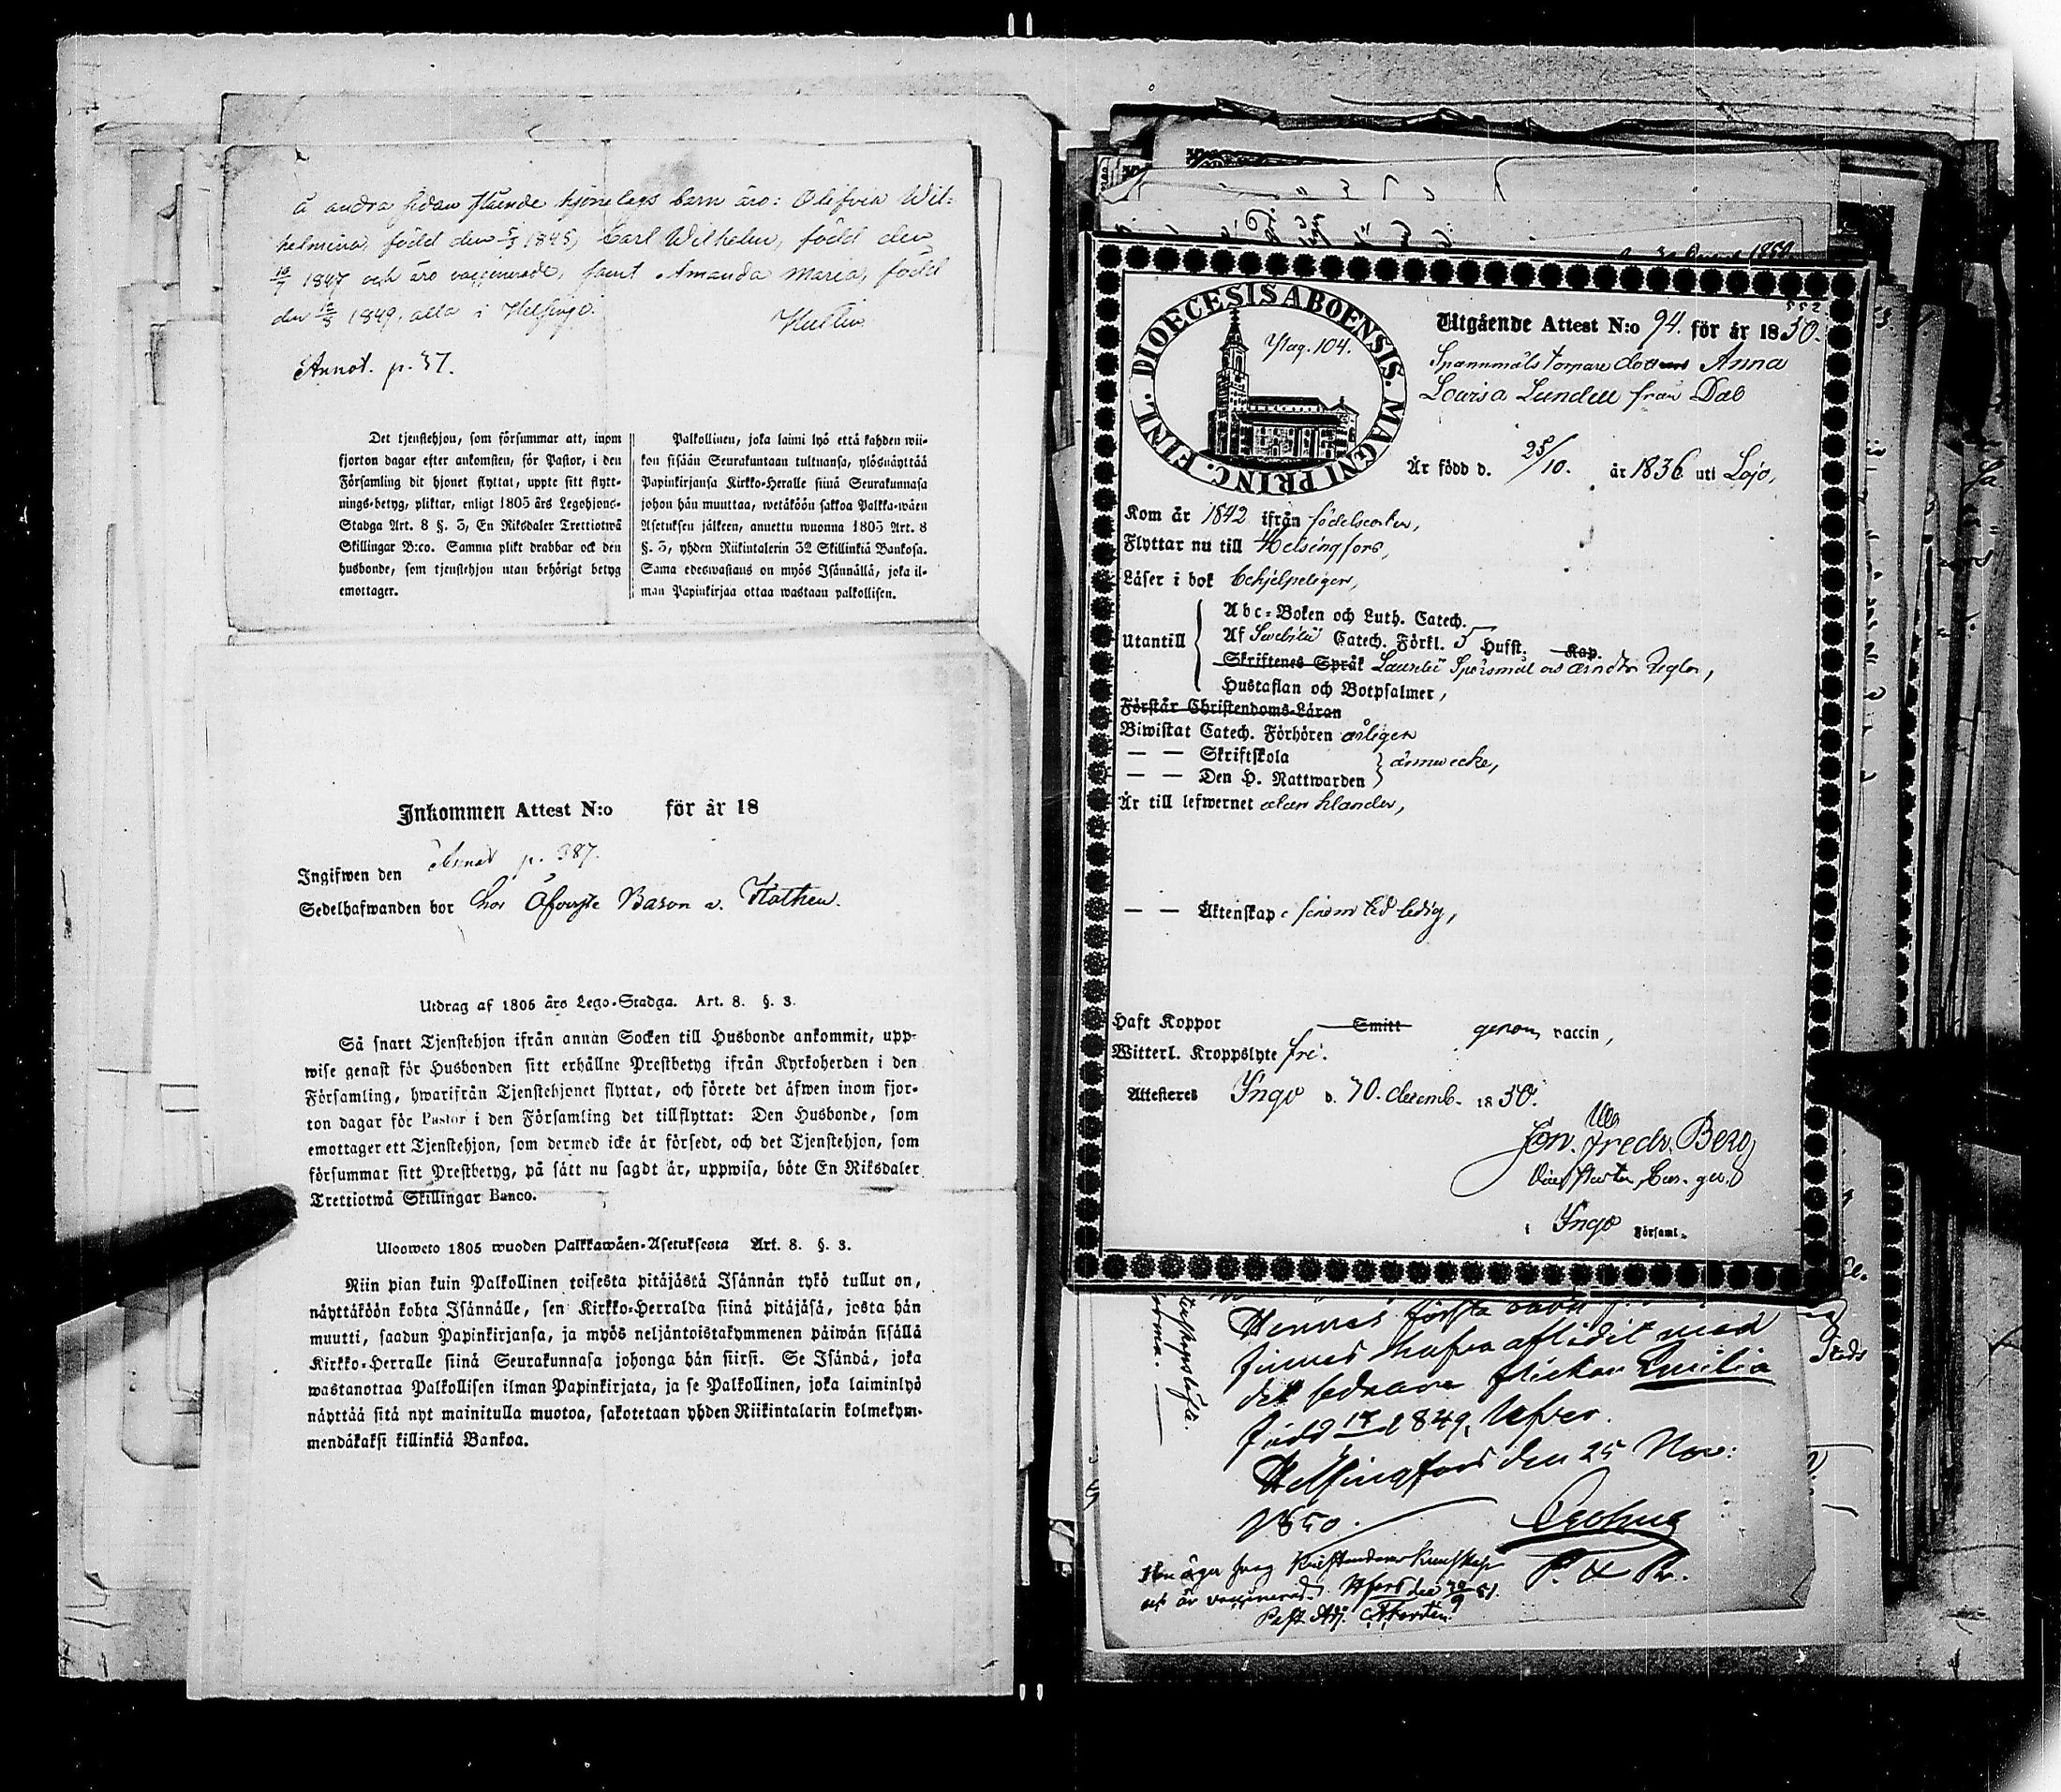 å andra sidan stående hjonelags barn äro: Olifvia Wil-
helmina, född den 5/3 1845, Carl Wilhelm, född den
1847 och äro vaccinerade, samt Amanda Maria, född
den 1849, alla i Helsinge.
Annot. p. 37.
Det tjenstehjon, som försummar att, inom
fjorton dagar efter ankomsten, för Pastor, i den
Församling dit hjonet flyttat, uppte sitt flytt-
nings-betyg, pliktar, enligt 1805 års Legohjons-
Stadga Art. 8 §. 3, En Riksdaler Trettiotwå
Skillingar B:co. Samma plikt drabbar ock den
husbonde, som tjenstehjon utan behörigt betyg
emottager.
Palkollinen, joka laimi lyö että kahden wii-
kon sisään Seurakuntaan tultuansa, ylösnäyttää
Papinkirjansa Kirkko-Heralle siinä Seurakunnasa
johon hän muuttaa, wetäköön sakkoa Palkka-wäen
Asetuksen jälkeen, annettu wuonna 1805 Art. 8
§. 3, yhden Riikintalerin 32 Skillinkiä Bankosa.
Sama edeswastaus on myös Isännällä, joka il-
man Papinkirjaa ottaa wastaan palkollisen.
Inkommen Attest N:o för år 18
Ingifwen den Annot p. 387.
Sedelhafwanden bor hos Öfverste Baron v. Kothen.
Utdrag af 1805 års Lego-Stadga. Art. 8. §. 3.
Så snart Tjenstehjon ifrån annan Socken till Husbonde ankommit, upp-
wise genast för Husbonden sitt erhållne Prestbetyg ifrån Kyrkoherden i den
Församling, hwarifrån Tjenstehjonet flyttat, och förete det äfwen inom fjor-
ton dagar för Pastor i den Församling det tillflyttat: Den Husbonde, som
emottager ett Tjenstehjon, som dermed icke är försedt, och det Tjenstehjon, som
försummar sitt Prestbetyg, på sätt nu sagdt är, uppwisa, böte En Riksdaler
Trettiotwå Skillingar Banco.
Ulosweto 1805 wuoden Palkkawäen-Asetuksesta Art. 8. §. 3.
Niin pian kuin Palkollinen toisesta pitäjästä Isännän tykö tullut on,
näyttäköön kohta Isännälle, sen Kirkko-Herralda siinä pitäjäsä, josta hän
muutti, saadun Papinkirjansa, ja myös neljäntoistakymmenen päiwän sisällä
Kirkko-Herralle siinä Seurakunnasa johonga hän siirsi. Se Isändä, joka
wastanottaa Palkollisen ilman Papinkirjata, ja se Palkollinen, joka laiminlyö
näyttää sitä nyt mainitulla muotoa, sakotetaan yhden Riikintalarin kolmekym-
mendäkaksi killinkiä Bankoa.
DIOECESIS ABOENSIS. MAGNI PRINC. FINL.
Pag. 104.
552
Utgående Attest N:o 94. för år 1850.
Spannmåls torpare dotter Anna
Lovisa Lundell från Dal
Är född d. 25/10. år 1836 uti Lojo,
Kom år 1842 ifrån födelseorten,
Flyttar nu till Helsingfors,
Läser i bok behjelpeligen,
Utantill
Abc-Boken och Luth. Catech.
Af Svebilii Catech. Förkl. 5 Hufst. Kap.
Skriftenes Språk Laurelii Spörsmål och
Hustaflan och Botpsalmer,
Förstår Christendoms-Läran
Biwistat Catech. Förhören årligen
— — Skriftskola
— — Den H. Nattwarden } ännu icke,
Är till lefwernet utan klander,
— — Äktenskap ledig,
Haft Koppor Smitt genom vaccin,
Witterl. Kroppslyte fri.
Attesteres Ingo d. 10. decemb. 1850.
Fredr. Berg
i Ingo Församl.
Hennes första
finnes hafva aflidit med
det sednare flickan Emilia
född 1849,
Helsingfors den 25 Nov:
1850.
Hon äger svag Kristendoms kunskap
och är vaccinerad. Hfors den
Past. Adj.